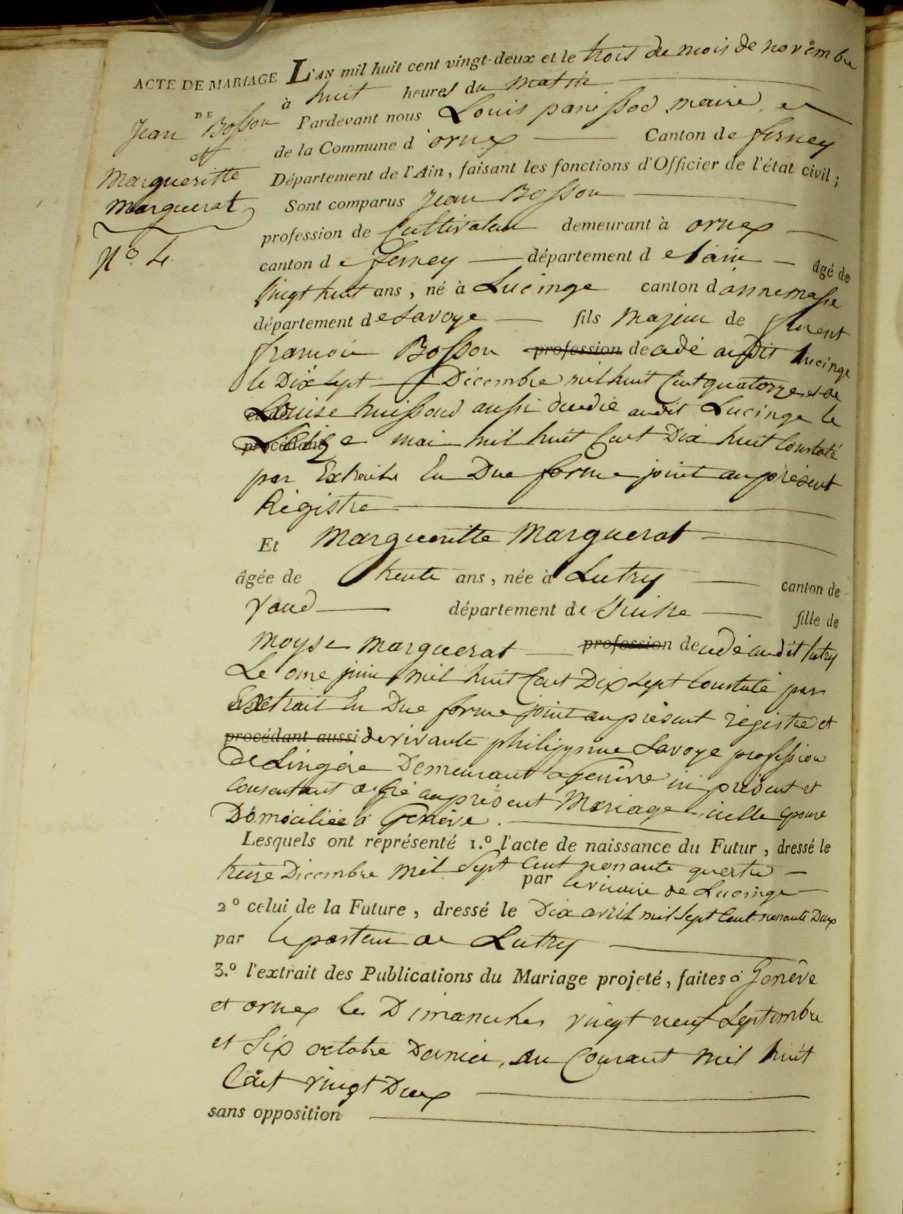 ACTE DE MARIAGE
DE
Jean Bosson
et
Margueritte
Marguerat
N.º 4.
L'AN mil huit cent vingt-deux et le trois du mois de novembre
à huit heures du matin
Pardevant nous Louis panissod maire
de la Commune d'ornex Canton de ferney
Département de l'Ain, faisant les fonctions d'Officier de l'état civil;
Sont comparus Jean Bosson
profession de Cultivateur demeurant à ornex
canton de ferney département de l'ain âgé de
vingt huit ans, né à Lucinge canton d'annemasse
département de Savoye fils majeur de
francois Bosson profession de cédé audit Lucinge
le Dix sept Décembre mil huit Cent quatorze et de
Louise aussi audit Lucinge le
mai mil huit Cent Dix huit Constaté
par Extraits En Due forme joint au présent
Régistre
Et Margueritte Marguerat
âgée de trente ans, née à Lutry canton de
vaud département de Suisse fille de
moyse marguerat profession de audit lutry
Le onze juin mil huit Cent Dix sept Constaté par
Extrait En Due forme joint au présent régistre et
procédant aussi de vivante philipine Savoye profession
De Lingère Demeurant a Genève ici présent et
consentant au présent Mariage icelle Epouse
Domiciliée à Genève.
Lesquels ont représenté 1.º l'acte de naissance du Futur, dressé le
treize Décembre mil sept Cent nonante quatre
par le vicaire de Lucinge
2º celui de la Future, dressé le Dix avril mil sept Cent nonante Deux
par le pasteur de Lutry
3.º l'extrait des Publications du Mariage projeté, faites à Genève
et ornex les Dimanches vingt neuf Septembre
et Six octobre Dernier, du Courant mil huit
Cent vingt Deux
sans opposition